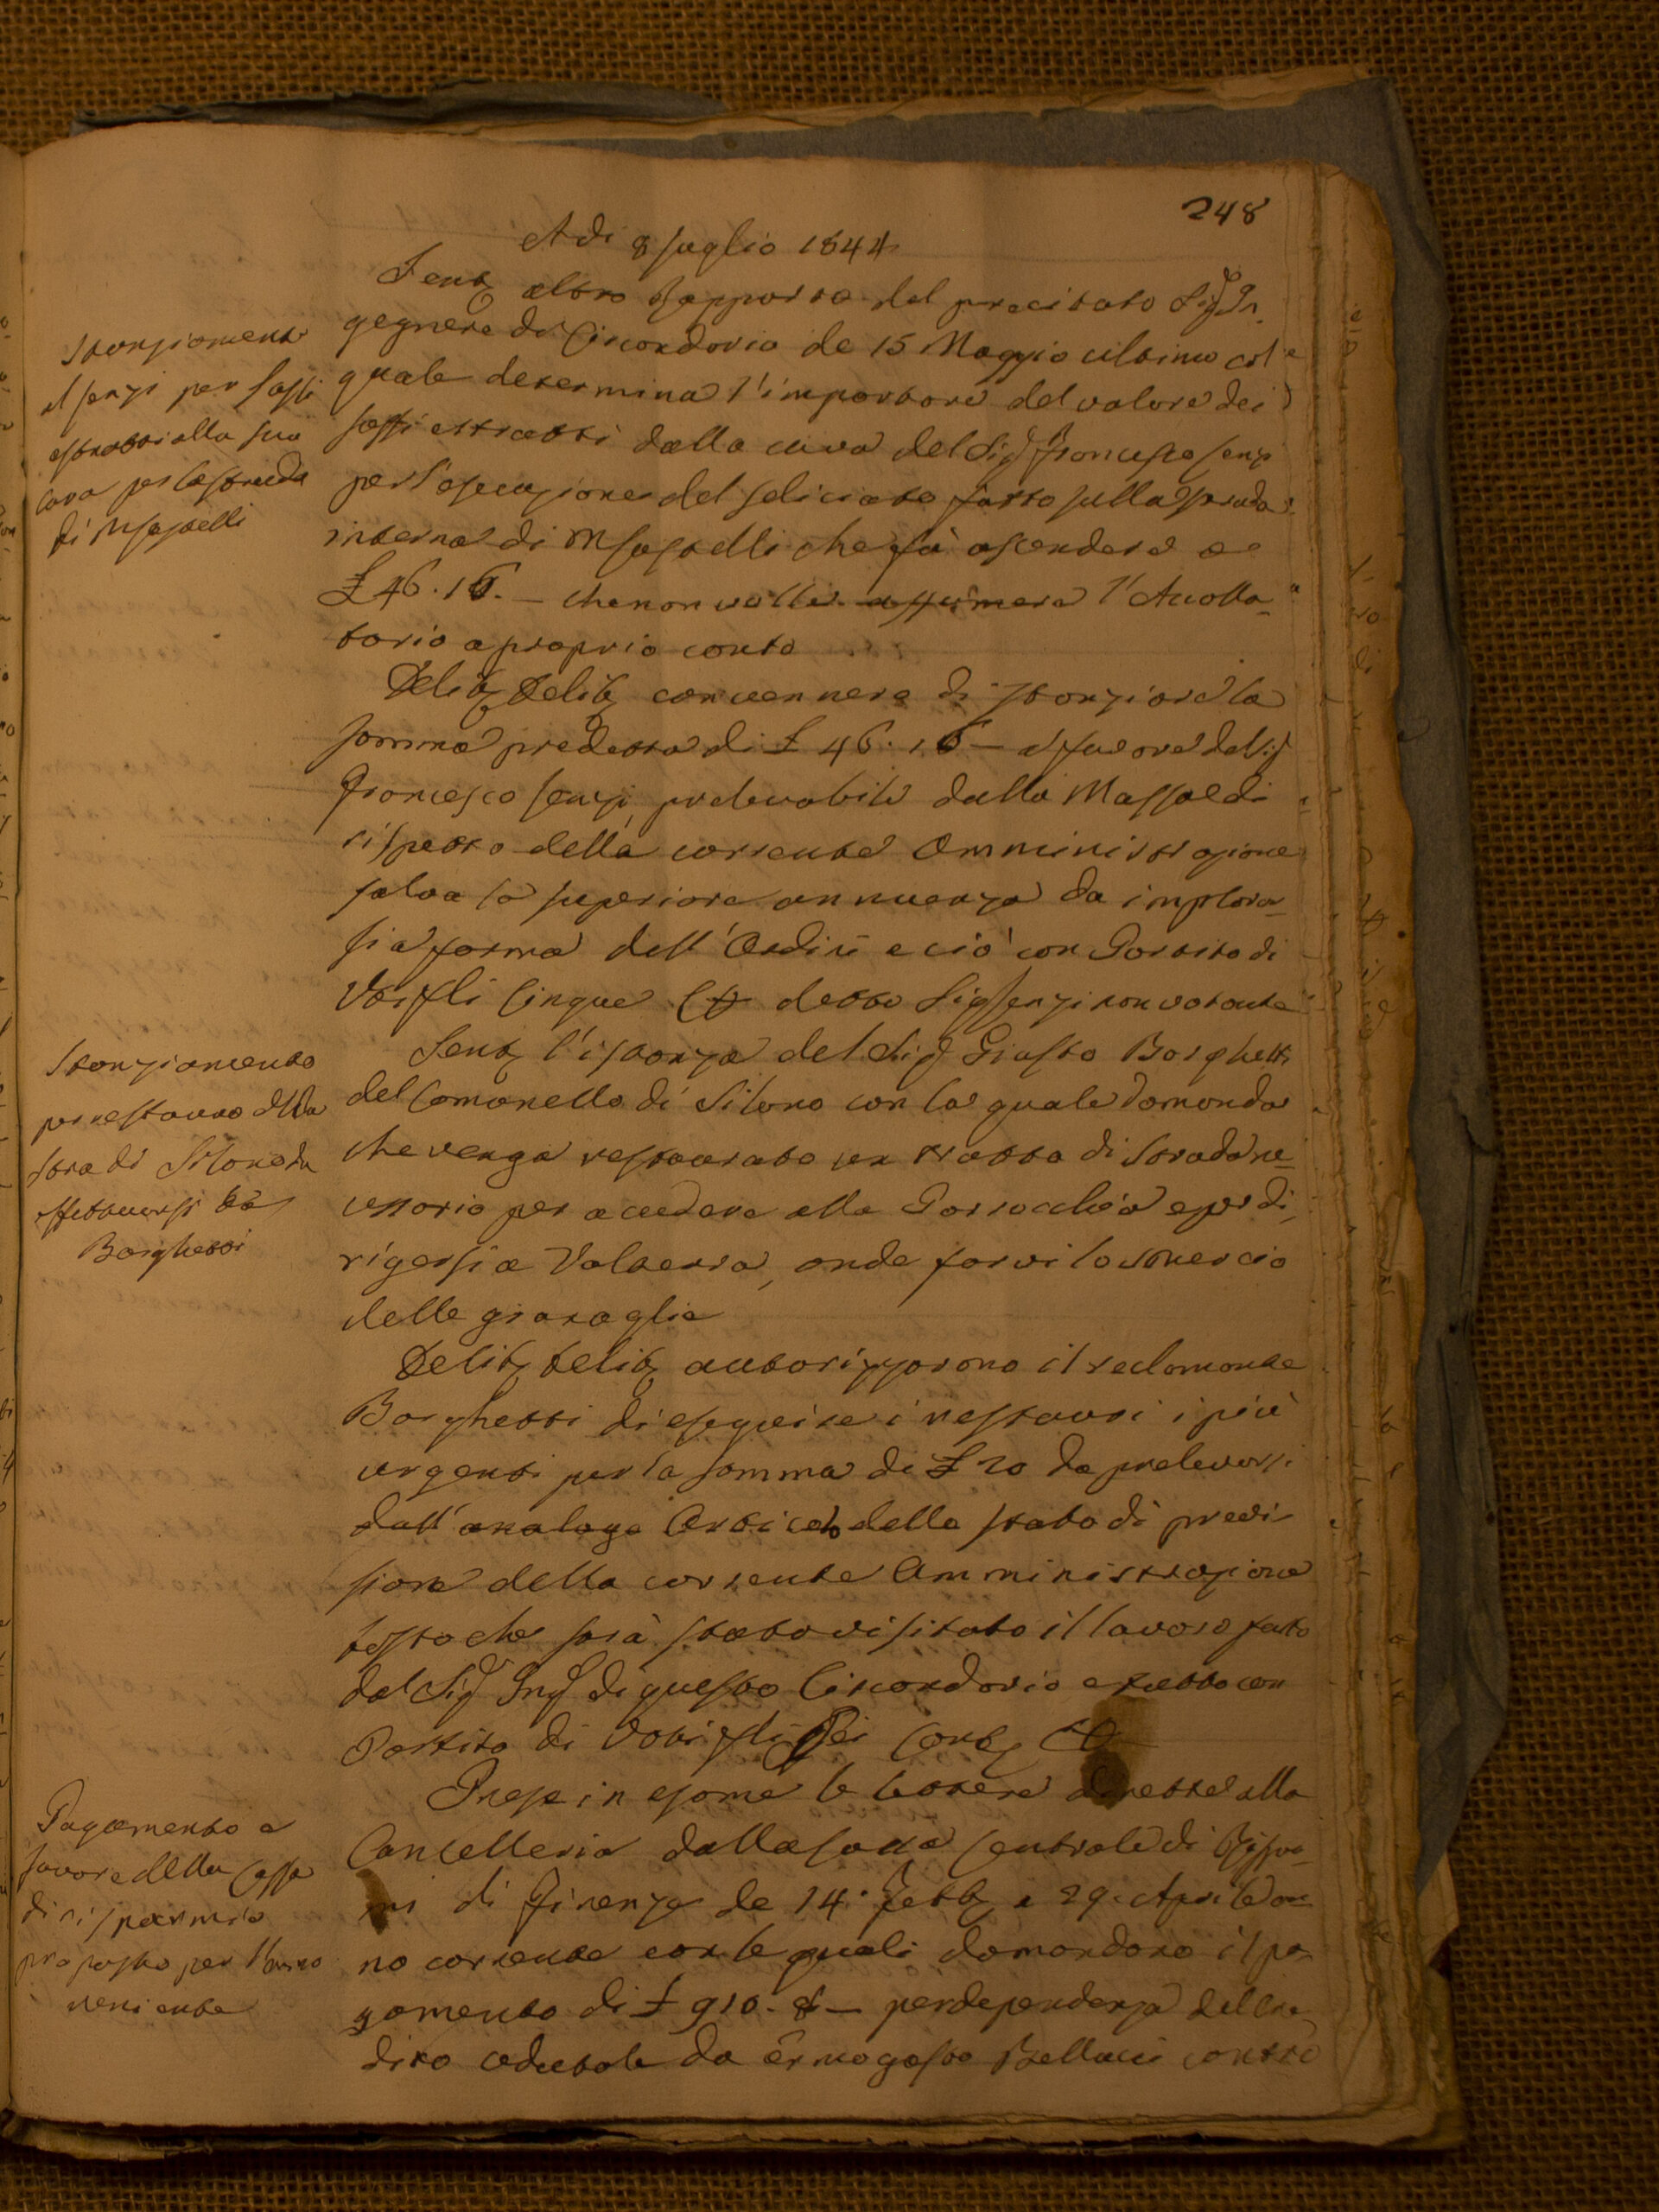 248
Adi 8 Luglio 1844
Sent altro Rapporto del precitato Sig In
gegnere di Circondario de 15 Maggio ultimo col
quale determina l'importare del valore dei
sassi estratti dalla cava del Sig Francesco Lenzi
per l'esecuzione del seliciato fatto sulla strada
interna di Micciano che fà ascendere a
£ 46.16.— che non volle assumere l'Accolla-
tario a proprio conto
Stanziamento
al Lenzi per Sassi
estratti alla sua
cava per la strada
Delib Delib convennero di stanziare la
somma predetta di £ 46.16 — a favore del Sig
Francesco Lenzi prelevabile dalla Massa di
rispetto della corrente Amministrazione
salva la superiore annuenza da implorar
si a forma dell'Ordini e ciò con Partito di
Voti fli Cinque detto Sig Lenzi non votante
Sent l'istanza del Sig Giusto Borghetti
del Comunello di Silano con la quale domanda
che venga restaurato un tratto di strada ne-
cessario per accedere alla Parrocchia e per di
rigersi a Volterra, onde farvi lo smercio
delle grasaglie
Stanziamento
per restauro della
stra di Silano da
effettuarsi da
Borghetti
Delib Delib autorizzarono il reclamante
Borghetti di eseguire i restauri i più
urgenti per la somma di £ 20 da prelevarsi
dall'analogo Articolo dello stato di previ
sione della corrente Amministrazione
tosto che sarà stato visitato il lavoro fatto
dal Sig Ing di questo Circondario e tutto con
Partito di Voti fli Sei Cont
Prese in esame le lettere dirette alla
Cancelleria dalla Cassa Centrale di Rispar-
mi di Firenze de 14 Febb e 29 Aprile an
no corrente con le quali domandano il pa
gamento di £ 910.8 — per dependenza del cre
dito cedutole da Ermogasto Bellucci contro
Pagamento a
favore della Cassa
di risparmio
proposto per l'anno
veniente